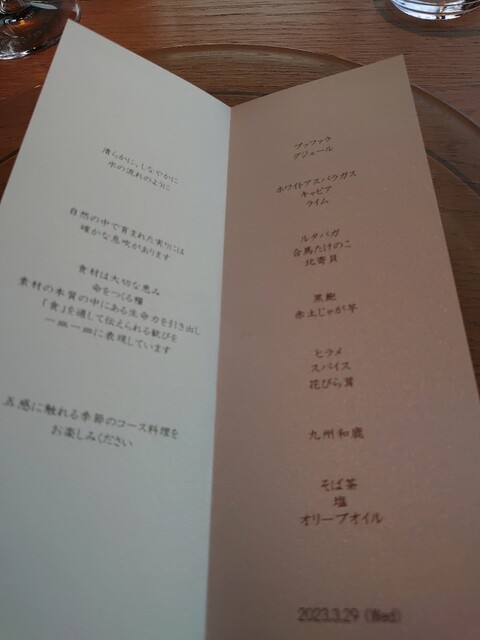 清らかに、しなやかに
水の流れのように
自然の中で育まれた実りには
確かな息吹があります
食材は大切な恵み
命をつくる種
素材の本質の中にある生命力を引き出し
「食」を通して伝えられる歓びを
一皿一皿に表現しています
五感に触れる季節のコース料理を
お楽しみください
ブッファラ
グジェール
ホワイトアスパラガス
キャビア
ライム
ルタバガ
合馬たけのこ
北寄貝
黒鮑
赤土じゃが芋
ヒラメ
スパイス
花びら茸
九州和鹿
そば茶
塩
オリーブオイル
2023.3.29 (Wed)